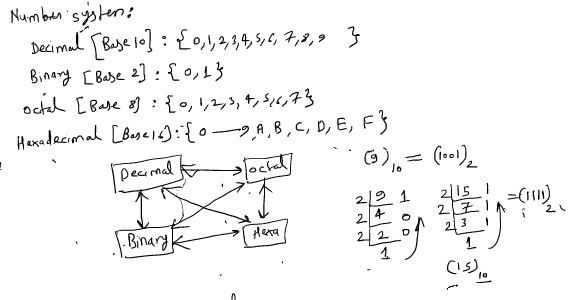 Number system:
Decimal [Base 10] : {0,1,2,3,4,5,6,7,8,9 }
Binary [Base 2] : {0,1}
octal [Base 8] : {0,1,2,3,4,5,6,7}
Hexadecimal [Base16]:{0 — 9,A,B,C,D,E,F}
(9)10 = (1001)2
Decimal octal
Binary Hexa
2|9 1
2|4 0
2|2 0
1
2|15 1
2|7 1
2|3 1
1
=(1111)2
(15)10